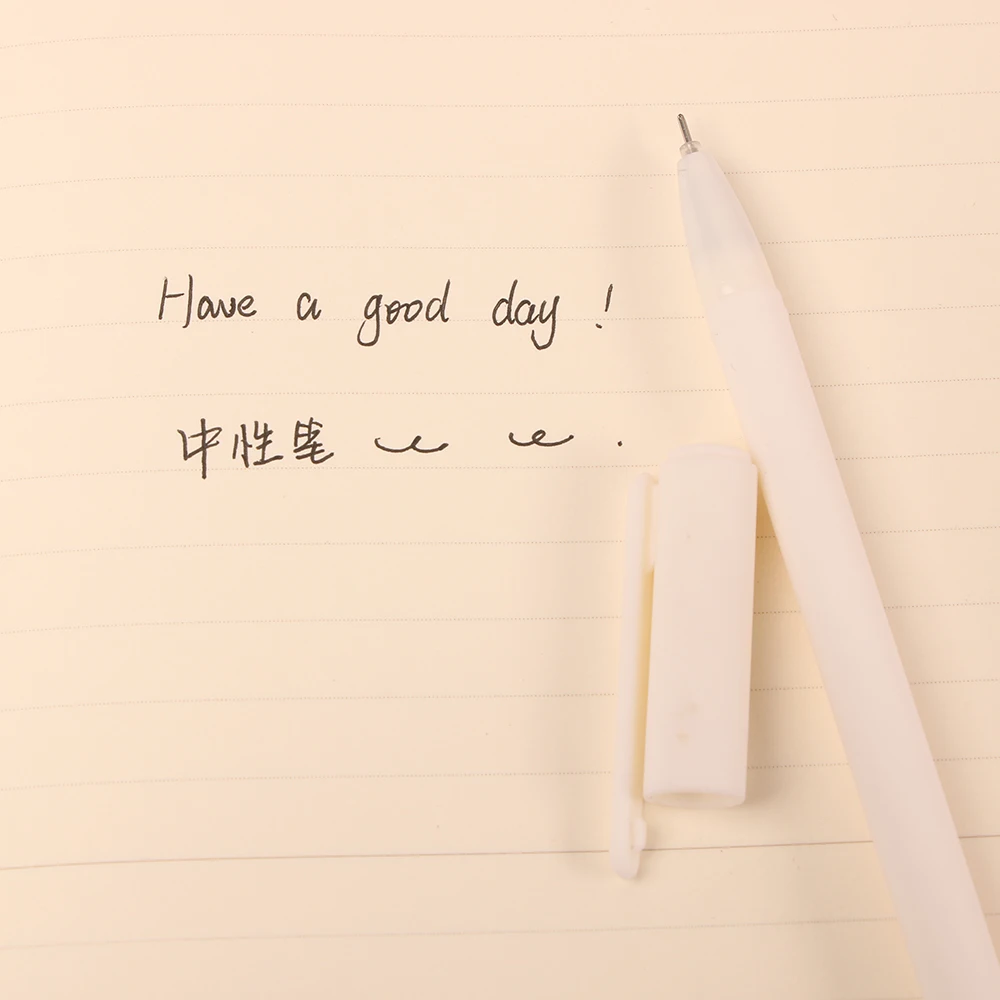 Have a good day !
中性笔 .